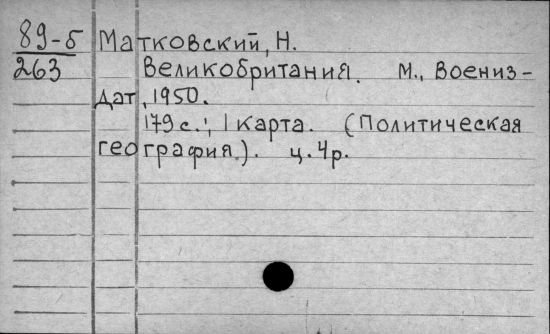 89-б Матковский, Н.
263 Великобритания. М., Воениз-
дат, 1950.
179 с.; 1 карта. (Политическая
география.). ц. 4р.